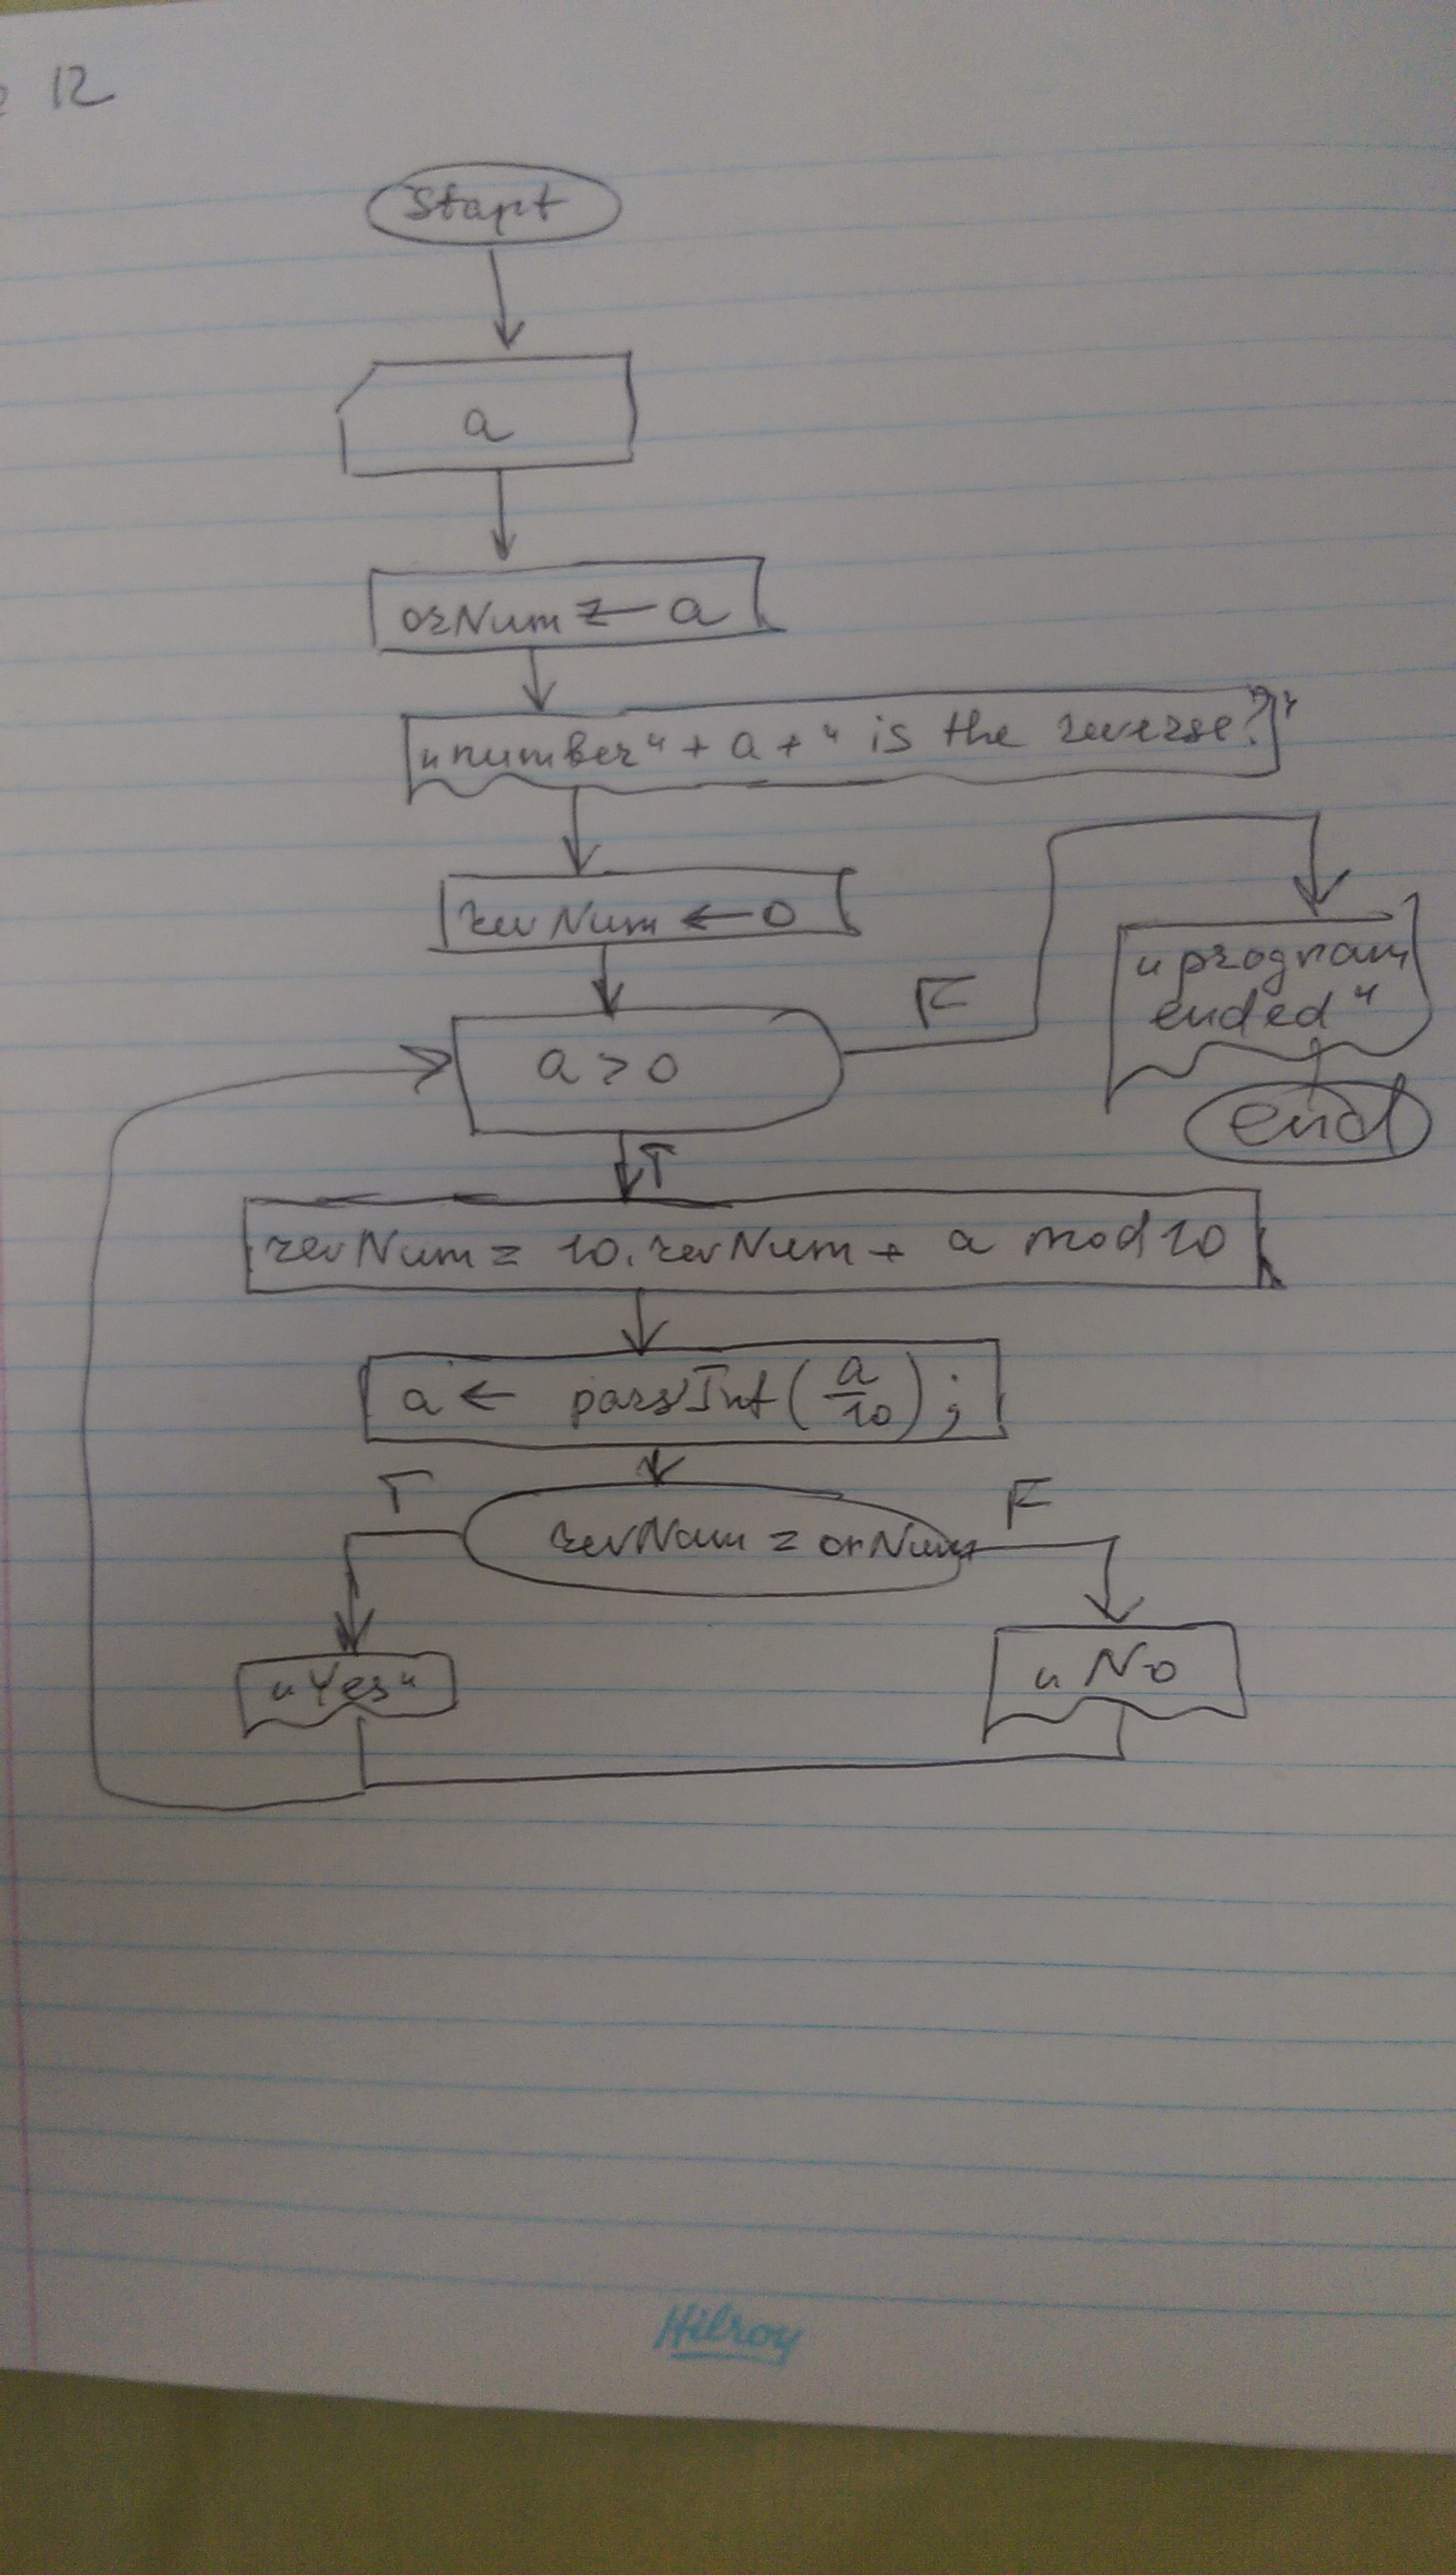 12
Start
a
orNum ← a
"number" + a + " is the reverse?"
revNum ← 0
F
"program
ended"
a > 0
end
T
revNum = 10. revNum + a mod 10
a ← parsInt(a/10);
T
F
revNum = orNum
"Yes"
"No
Hilroy